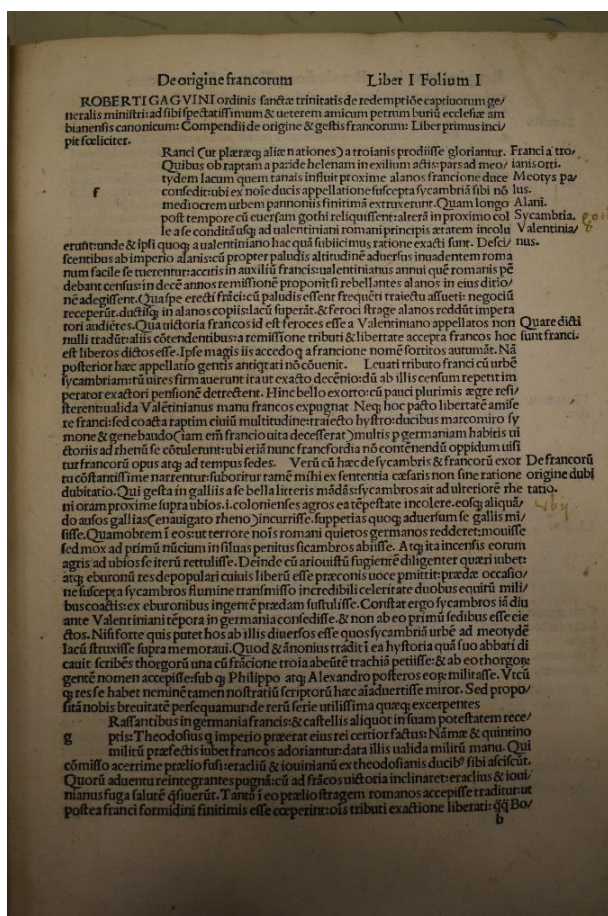 De origine francorum Liber I Folium I
ROBERTI GAGVINI ordinis sanctæ trinitatis de redemptiõe captiuorum ge/
neralis ministri: ad sibi spectatissimum & ueterem amicum petrum buriũ ecclesiæ am
bianensis canonicum: Compendii de origine & gestis francorum: Liber primus inci/
pit fœliciter.
Ranci (ut plæræq; aliæ nationes) a troianis prodiisse gloriantur. Franci a tro/
Quibus ob raptam a paride helenam in exilium actis: pars ad meo/ ianis orti.
tydem lacum quem tanais influit proxime alanos francione duce Meotys pa/
f consedit: ubi ex noĩe ducis appellatione suscepta sycambriã sibi nõ lus.
mediocrem urbem pannoniis finitimã extruxerunt. Quam longo Alani.
post tempore cũ euersam gothi reliquissent: alterã in proximo col Sycambria.
le a se conditã usq; ad ualentiniani romani principis ætatem incolu Valentinia/
erunt: unde & ipsi quoq; a ualentiniano hac quã subiicimus ratione exacti sunt. Desci/ nus.
scentibus ab imperio alanis: cũ propter paludis altitudinẽ aduersus inuadentem roma
num facile se tuerentur: accitis in auxiliũ francis: ualentinianus annui quẽ romanis pẽ
debant census: in decẽ annos remissiõe proposita rebellantes alanos in eius ditio/
nẽ adegissent. Qua spe erecti frãci: cũ paludis essent frequẽti traiectu assueti: negociũ
receperũt. ductisq; in alanos copiis: lacũ superãt. & feroci strage alanos reddũt impera
tori audiẽtes. Qua uictoria francos id est feroces esse a Valentiniano appellatos non Quare dicti
nulli tradũt: aliis cõtendentibus: a remissione tributi & libertate accepta francos hoc sunt franci.
est liberos dictos esse. Ipse magis iis accedo q a francione nomẽ sortitos autumãt. Nã
posterior hæc appellatio gentis antiqtati nõ cõuenit. Leuati tributo franci cũ urbẽ
sycambriam: tũ uires firmauerunt ita ut exacto decẽnio: dũ ab illis censum repetit im
perator exactori pensionẽ detrectent. Hinc bello exorto: cũ pauci plurimis ægre resi/
sterent: ualida Valẽtinianus manu francos expugnat. Neq; hoc pacto libertatẽ amise
re franci: sed coacta raptim ciuiũ multitudine: traiecto hystro: ducibus marcomiro sy
mone & genebaudo (iam em̃ francio uita decesserat) multis p germaniam habitis ui
ctoriis ad rhenũ se cõtulerunt: ubi etiã nunc francfordia nõ contẽnendũ oppidum uisi
tur francorũ opus atq; ad tempus sedes. Verũ cũ hæc de sycambris & francorũ exor De francorũ
tu cõstantissime narrentur: suboritur tamẽ mihi ex sententia cæsaris non sine ratione origine dubi
dubitatio. Qui gesta in galliis a se bella litteris mãdãs: sycambros ait ad ulteriorẽ rhe tatio.
ni oram proxime supra ubios .i. colonienses agros ea tẽpestate incolere. eosq; aliquã/
do ausos gallias (enauigato rheno) incurrisse. suppetias quoq; aduersum se gallis mi/
sisse. Quamobrem ĩ eos: ut terrore noĩs romani quietos germanos redderet: mouisse
sed mox ad primũ nũcium in siluas penitus sicambros abiisse. Atq; ita incensis eorum
agris ad ubios se iterũ rettulisse. Deinde cũ ariouistũ fugientẽ diligenter quæri iubet:
atq; eburonũ res depopulari cuiuis liberũ esse præconis uoce pmittit: prædæ occasio/
ne suscepta sycambros flumine transmisso incredibili celeritate duobus equitũ mili/
bus coactis: ex eburonibus ingentẽ prædam sustulisse. Constat ergo sycambros iã diu
ante Valentiniani tẽpora in germania consedisse. & non ab eo primũ sedibus esse eie
ctos. Nisi forte quis putet hos ab illis diuersos esse quos sycambriã urbẽ ad meotydẽ
lacũ struxisse supra memoraui. Quod & ãnonius tradit ĩ ea hystoria quã suo abbati di
cauit scribẽs thorgorũ una cũ frãcione troia abeũtẽ trachiã petiisse: & ab eo thorgoꝝ
gentẽ nomen accepisse: sub q Philippo atq; Alexandro posteros eoꝝ militasse. Vtcũ
q; res se habet neminẽ tamen nostratiũ scriptorũ hæc aĩaduertisse miror. Sed propo/
sitã nobis breuitatẽ persequamur: de rerũ serie utilissima quæq; excerpentes
Rassantibus in germania francis: & castellis aliquot in suam potestatem rece/
g ptis: Theodosius q imperio præerat eius rei certior factus: Nãmæ & quintino
militũ præfectis iubet francos adoriantur: data illis ualida militũ manu. Qui
cõmisso acerrime prælio fusi: eracliũ & iouinianũ ex theodosianis ducibꝰ sibi asciscũt.
Quorũ aduentu reintegrantes pugnã: cũ ad frãcos uictoria inclinaret: eraclius & ioui/
nianus fuga salutẽ q̃siuerũt. Tantã ĩ eo prælio stragem romanos accepisse traditur: ut
postea franci formidini finitimis esse cœperint: oĩs tributi exactione liberati: q̃q̃ Bo/
b